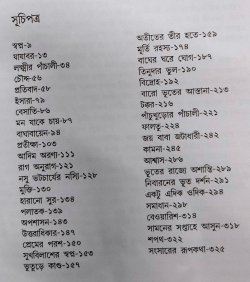 সূচিপত্র
স্বপ্ন-৯
যাযাবর-১৩
লক্ষ্মীর পাঁচালী-৩৪
চৌষ্ক-৫৬
প্রতিবাদ-৫৮
ইসারা-৭৯
বেসাতি-৮৬
মন যাকে চায়-৮৭
বাঘাবায়েন-৯৪
প্রতীক্ষা-১০৩
আদিম অরণ্য-১১১
রাগ অনুরাগ-১২১
নসু ভটচার্যের নস্যি-১২৮
মুক্তি-১৩০
হারানো সুর-১৩৪
পলাতক-১৩৯
অপশাসন-১৪৩
উত্তরাধিকার-১৪৭
প্রেমের পরশ-১৫০
সুখবিলাসের স্বপ্ন-১৫৩
ভুতুড়ে কাণ্ড-১৫৭
অতীতের তীর হতে-১৫৯
মূর্তি রহস্য-১৭৪
বাঘের ঘরে ঘোগ-১৮৭
তিনুদার ভুল-১৯০
বিদ্রোহ-১৯২
বারো ভূতের আস্তানা-২১৩
টক্কর-২১৬
পাঁচুখুড়োর পাঁচালী-২২১
ফালতু-২২৪
জয় বাবা জটাধারী-২৪২
কামনা-২৪৫
আশ্বাস-২৮৬
ভূতের রাজ্যে অশান্তি-২৮৯
নিবারনের ভূত দর্শন-২৯১
একটু এদিক ওদিক-২৯৪
সমাধান-২৯৮
বেওয়ারিশ-৩১৪
সামনের সপ্তাহে আসুন-৩১৮
শপথ-৩২২
সংসারের রূপকথা-৩২৫